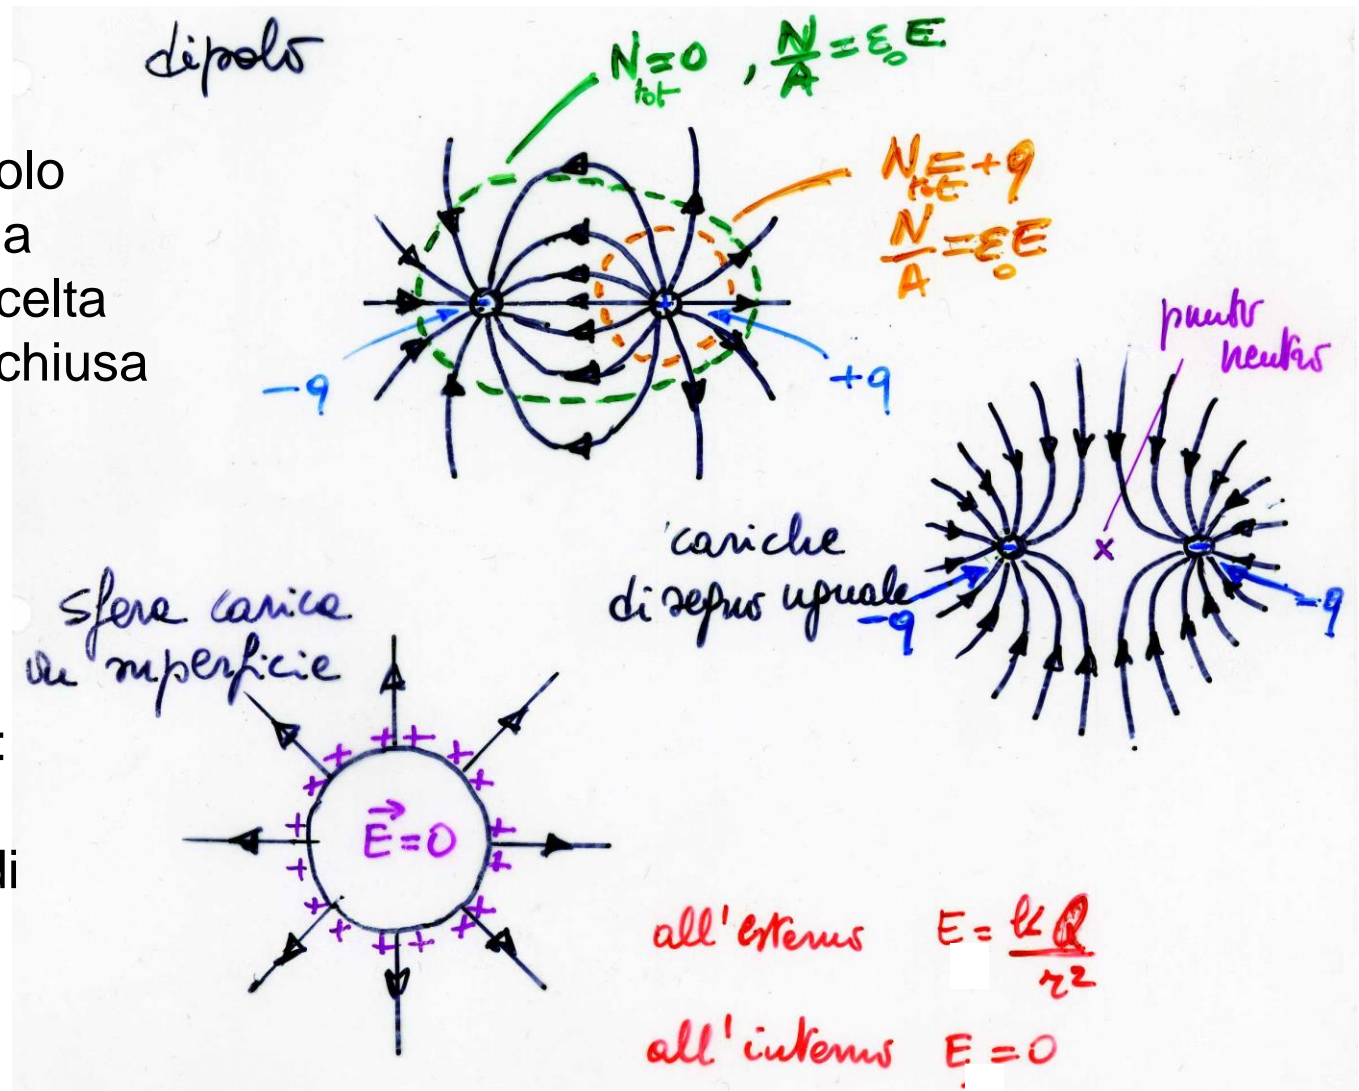 dipolo
N_tot = 0 , N/A = ε₀E
olo
a
celta
chiusa
N_tot = +q
N/A = ε₀E
-
+
-q
+q
punto
neutro
cariche
di segno uguale
-
x
-
-q
-q
sfera carica
in superficie
:
di
+ + + + + + + + + + + + + + + +
E⃗=0
all'esterno E = kQ/r²
all'interno E = 0